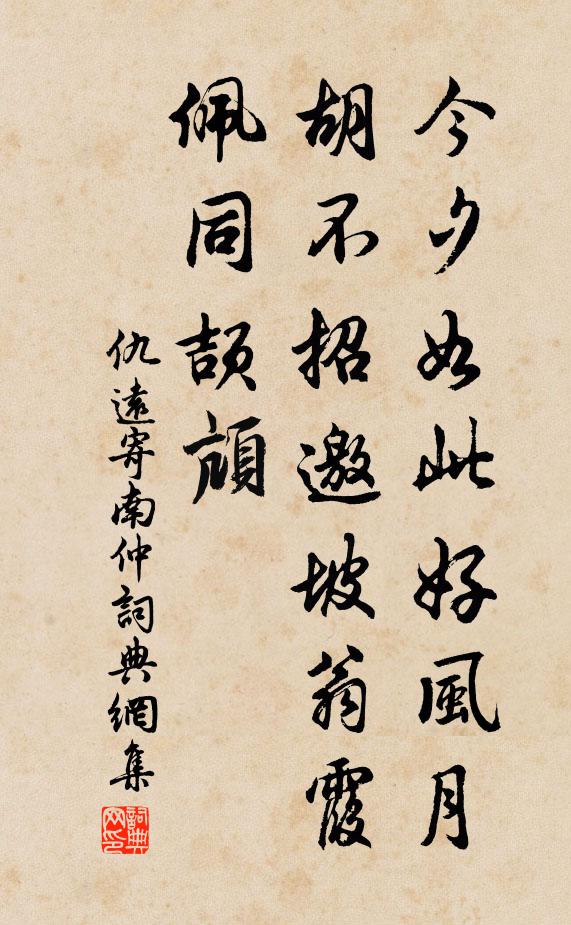 今夕如此好風月
胡不招邀坡翁霞
佩同頡頏
仇遠寄南仲詞典網集
詞典网印